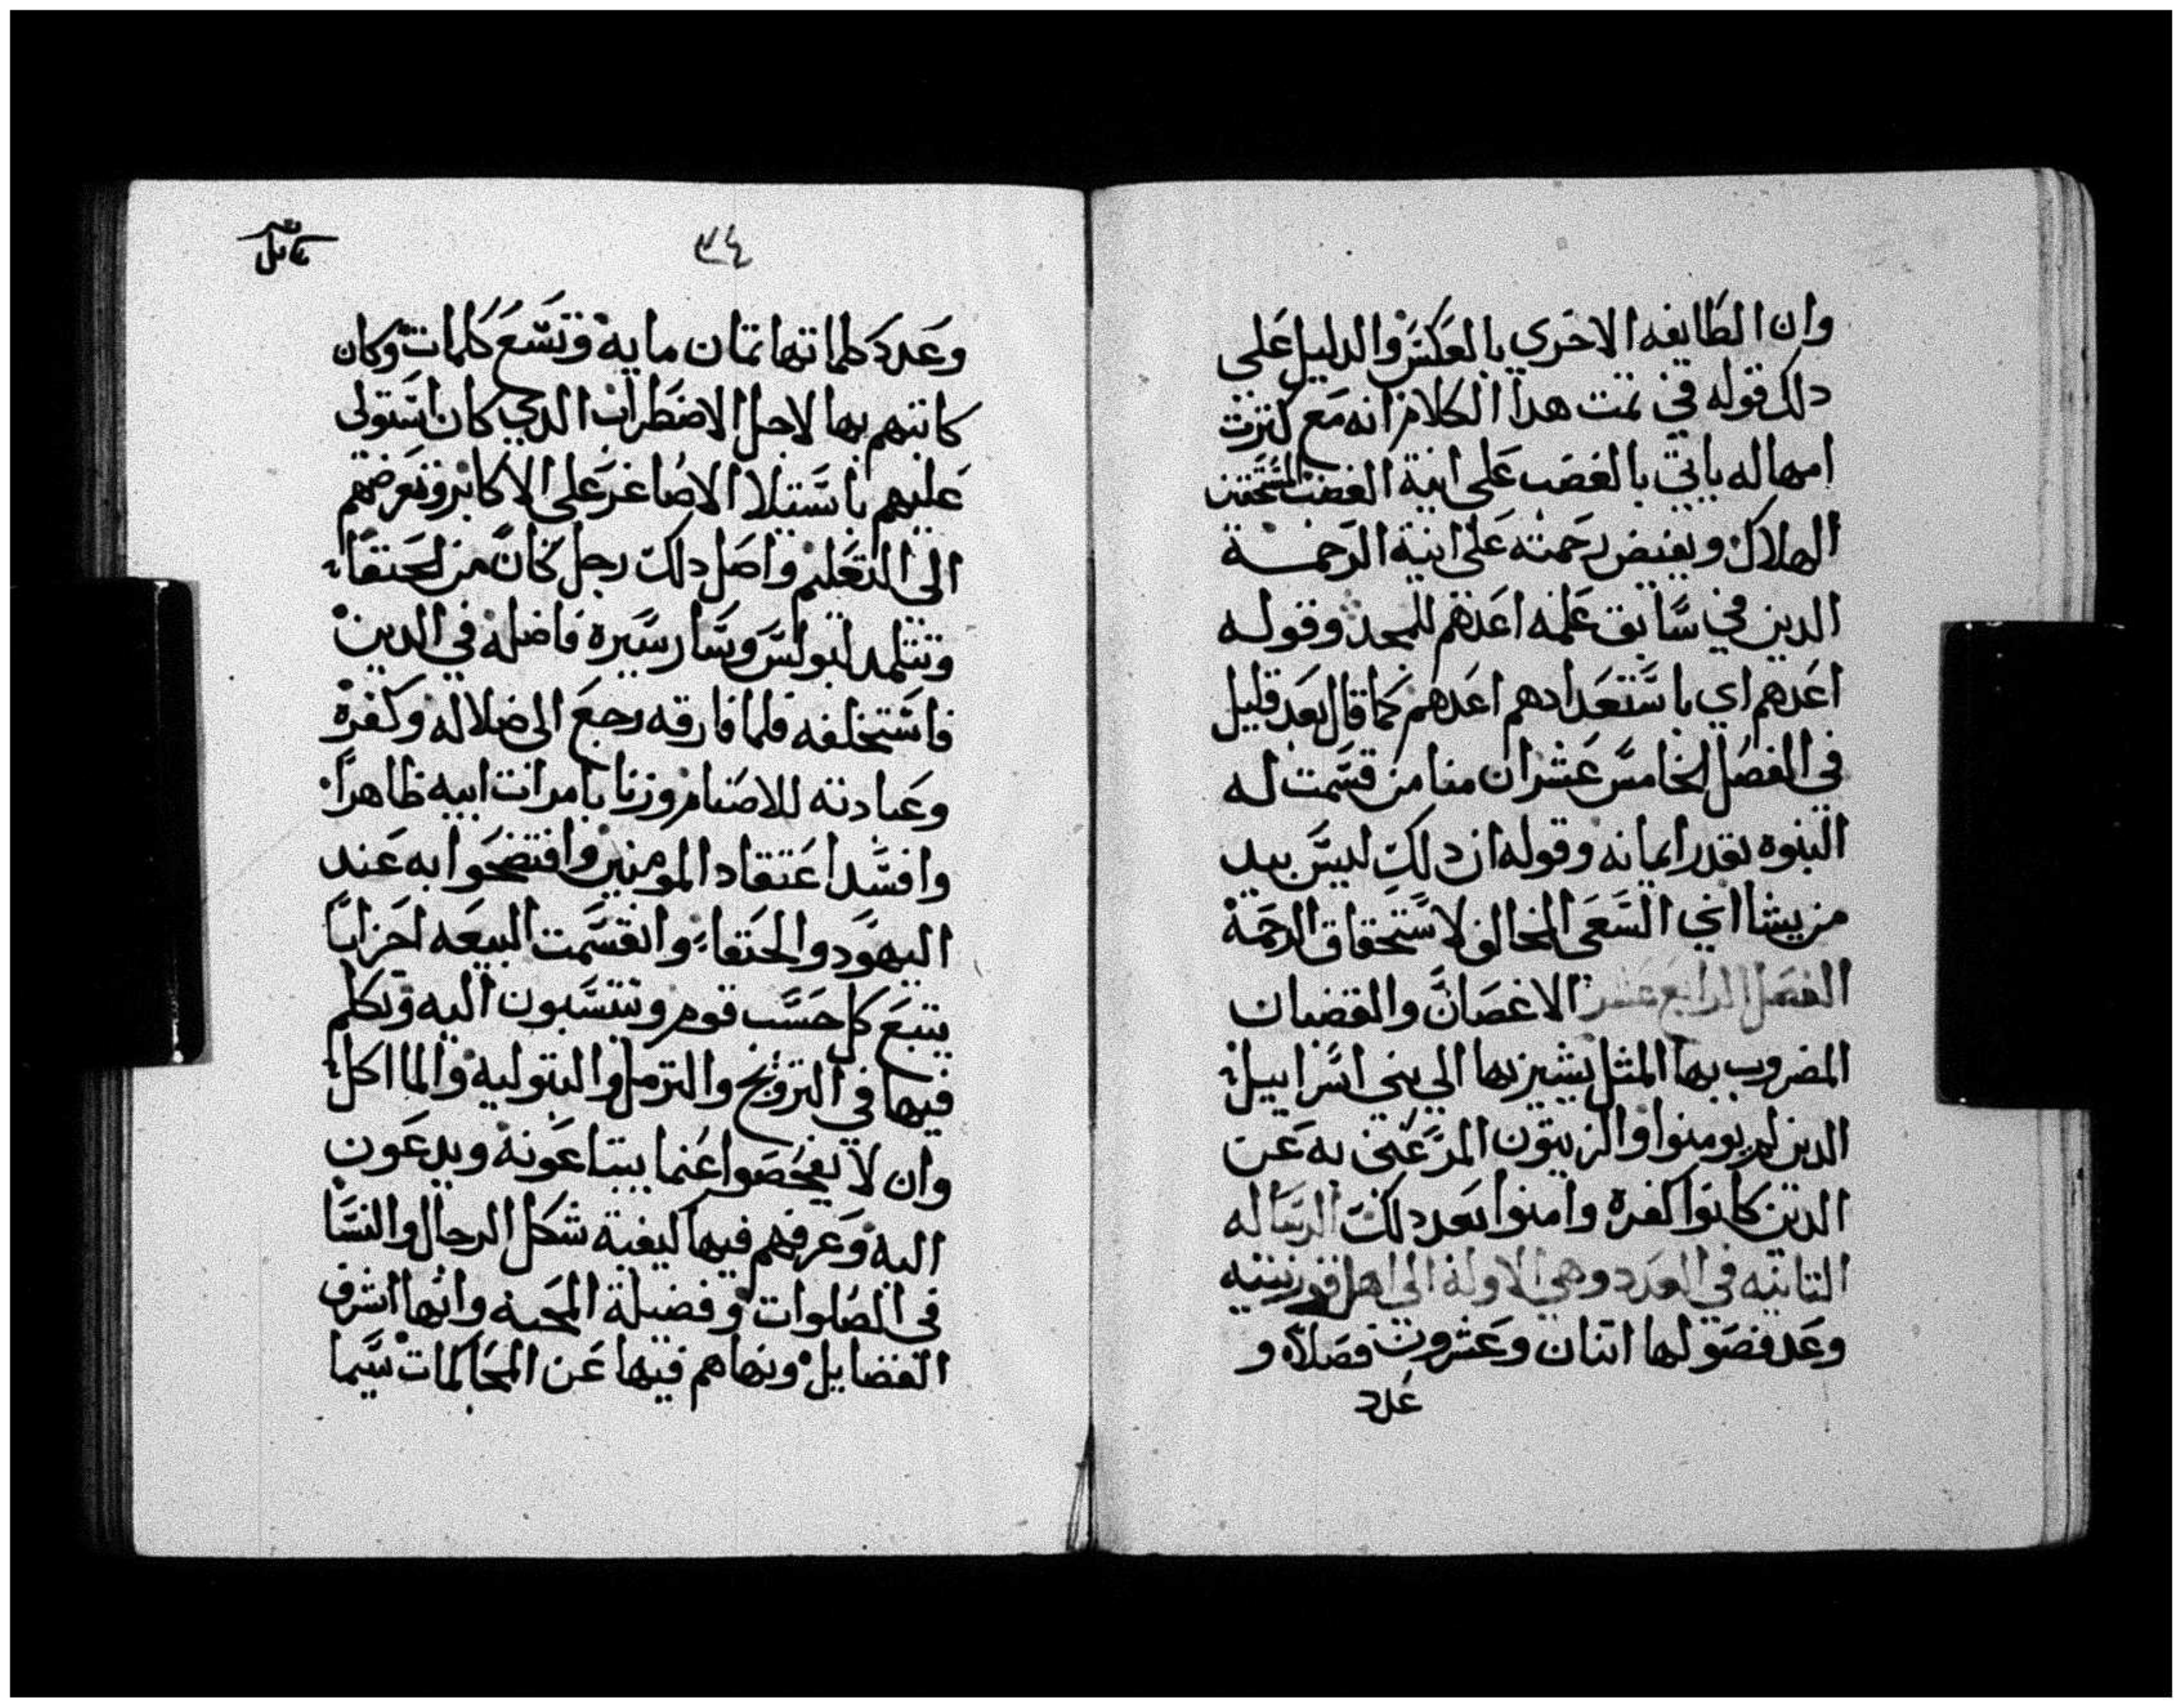 وان الطايفه الاخري بالعكس والدليل علي
دلك قوله في تمت هدا الكلام انه مع كترت
امهاله ياتي بالغضب علي انية الغضب المستحقين
الهلاك ويفيض رحمته علي انية الرحمة
الدين في سابق علمه اعدهم للمجد وقوله
اعدهم اي باستعدادهم اعدهم كما قال بعد قليل
في الفصل الخامس عشر ان منا من قسمت له
النبوه بقدر ايمانه وقوله ان دلك ليس بيد
من يشا اي السعي المخالف لاستحقاق الرحمة
الفصل الرابع عشر الاغصان والقضبان
المضروب بها المثل يشير بها الي بني اسراييل
الدين لم يومنوا والزيتون المر عني به عن
الدين كانوا كفره وامنوا بعد دلك الرساله
التانيه في العدد وهي الاولة الي اهل قورنتيه
وعد فصولها اتنان وعشرون فصلا و
عدد
٣٤
وعدد كلماتها تمان مايه وتسع كلمات وكان
كاتبهم بها لاجل الاضطراب الدي كان استولي
عليهم باستيلا الاصاغر علي الاكابر وتعرضهم
الي التعليم واصل دلك رجل كان من الحنفا
وتتلمد لبولس وسار سيره فاضله في الدين
فاستخلفه فلما فارقه رجع الي ضلاله وكفره
وعبادته للاصنام وزنا بامرات ابيه ظاهرا
وافسد اعتقاد المومنين وافتضحوا به عند
اليهود والحنفا وانقسمت البيعه احزابا
يتبع كل حسب قوم وينتسبون اليه وتكلم
فيها في التزويج والترمل والبتوليه والمااكل
وان لا يفحصوا عنما يبتاعونه ويدعون
اليه وعرفهم فيها كيفية شكل الرجال والنسا
في الصلوات وفضيلة المحبه وانها اشرف
الفضايل ونهاهم فيها عن المحاكمات سيما